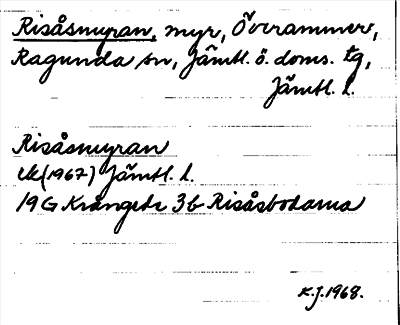 Risåsmyran, myr, Överammer,
Ragunda sn, Jämtl. ö. doms. tg,
Jämtl. l.
Risåsmyran
ek (1967) Jämtl. l.
19G Krångede 3b Risåsbodarna
K.J. 1968.